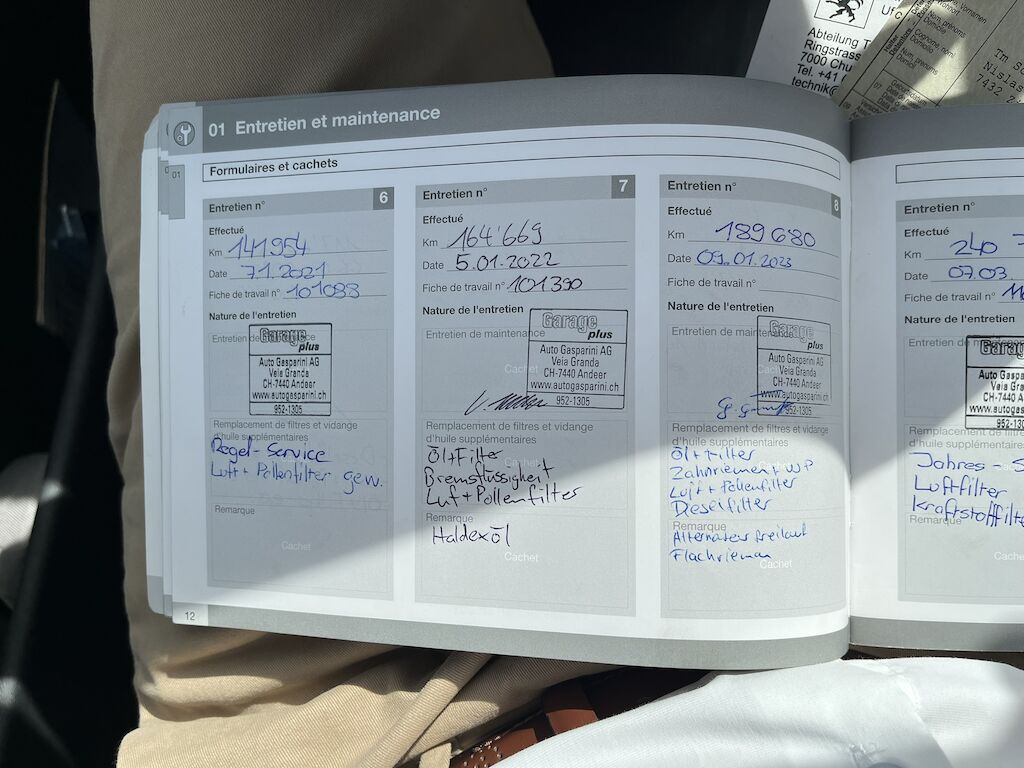 Abteilung T
Ringstrass
7000 Chu
Tel. +41
technik@
Nislas
01 Entretien et maintenance
Formulaires et cachets
01
Entretien n° 6
Effectué
Km 141954
Date 7.1.2021
Fiche de travail n° 101088
Nature de l'entretien
Entretien de maintenance
Garage
plus
Auto Gasparini AG
Veia Granda
CH-7440 Andeer
www.autogasparini.ch
952-1305
Remplacement de filtres et vidange
d'huile supplémentaires
Regel-Service
Luft + Pollenfilter gew.
Remarque
Cachet
12
Entretien n° 7
Effectué
Km 164'669
Date 5.01.2022
Fiche de travail n° 101390
Nature de l'entretien
Entretien de maintenance
Cachet
Garage
plus
Auto Gasparini AG
Veia Granda
CH-7440 Andeer
www.autogasparini.ch
952-1305
Remplacement de filtres et vidange
d'huile supplémentaires
Öl+Filter
Bremsflüssigkeit
Luf+Pollenfilter
Remarque
Haldexöl
Cachet
Entretien n° 8
Effectué
Km 189680
Date 09.01.2023
Fiche de travail n°
Nature de l'entretien
Entretien de maintenance
Cachet
Garage
plus
Auto Gasparini AG
Veia Granda
CH-7440 Andeer
www.autogasparini.ch
952-1305
Remplacement de filtres et vidange
d'huile supplémentaires
Öl+Filter
Zahnriemen+WP
Luft+Pollenfilter
Deselfilter
Remarque
Alternateur freilauf
Flachrieman
Cachet
Entretien n°
Effectué
Km 240
Date 07.03.
Fiche de travail n°
Nature de l'entretien
Entretien de
Garag
Auto Gaspa
Veia Gra
CH-7440
www.autoga
952-130
Remplacement de filtres
d'huile supplémentaires
Jahres - S
Luftfilter
Kraftstoffilte
Remarque
Cachet